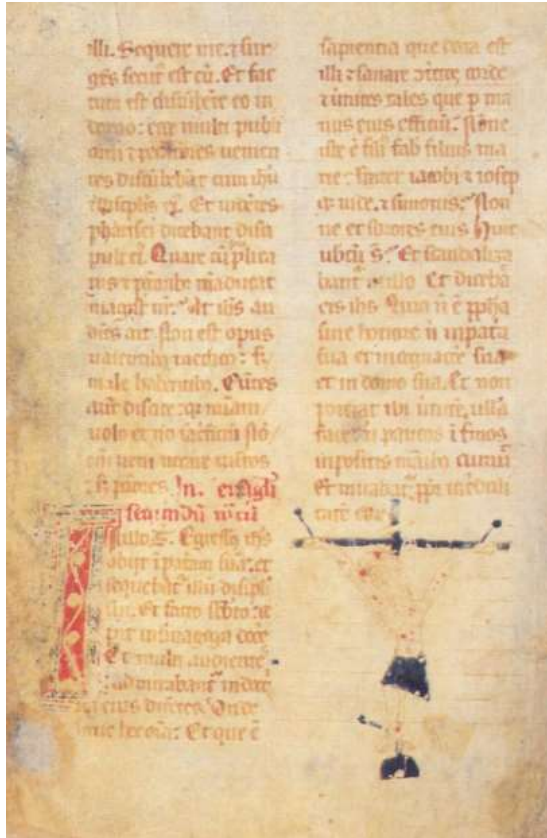 illi. Sequere me. ⁊ sur
gẽs secut᷒ est eũ. Et fac
tum est discũbẽte eo in
domo: ecce multi publi
cani ⁊ pctores venien
tes discũbebãt cum ihũ
⁊ discipls ei᷒. Et vidẽtes
pharisei dicebant disci
pulis ei᷒. Quare cũ plica
nis ⁊ mãducat
magist vr̃. At ihs au
diẽs ait Non est opus
valentib᷒ medico: s̃
male habentib᷒. Eũtes
aut̃ discite: qd
volo et nõ sacficiũ Nõ
eni veni vocare iustos
s̃ pctores. In. euãgli
secundũ
In illo t̃. Egress᷒ ihs
abiit ĩ patriam suã: et
sequebãt᷑ illũ discipli
sui. Et facto sb̃to: ce
pit in sinagoga docẽ
Et multi audientes
admirabant᷑ in doct
na eius dicẽtes. Vnde
huic hec omĩa: Et que ẽ
sapientia que data est
illi
⁊ virtutes tales que p ma
nus eius efficiũt᷑. Nõne
iste ẽ fab filius ma
rie: frater iacobi ⁊ ioseph
⁊ iude. ⁊ simonis: Non
ne et sorores eius huic
nobcũ s̃. Et scandaliza
bant᷑ in illo Et dicebã
eis ihs Quia ñ ẽ ppha
sine honore ñ in patia
sua et in cognatõe sua
et in domo sua. Et non
poterat ibi ullã
facere: ñ paucos ĩfirmos
inpositis manib᷒ curauit
Et mirabat᷑ ppt̃ incredul
tatẽ eoꝝ